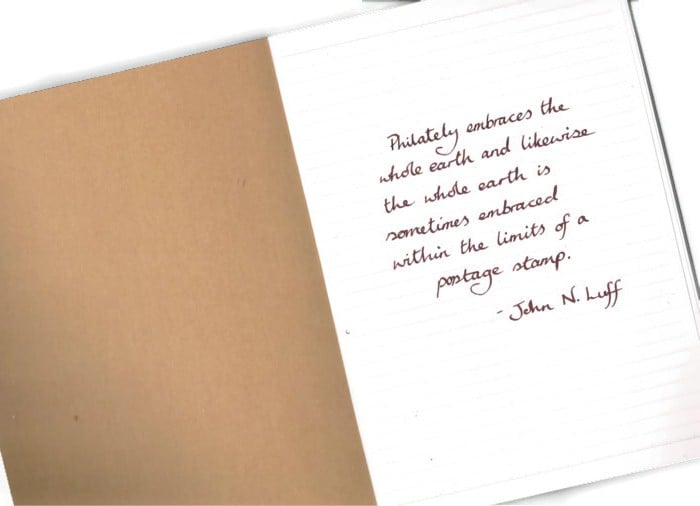 Philately embraces the
whole earth and likewise
the whole earth is
sometimes embraced
within the limits of a
postage stamp.
- John N. Luff